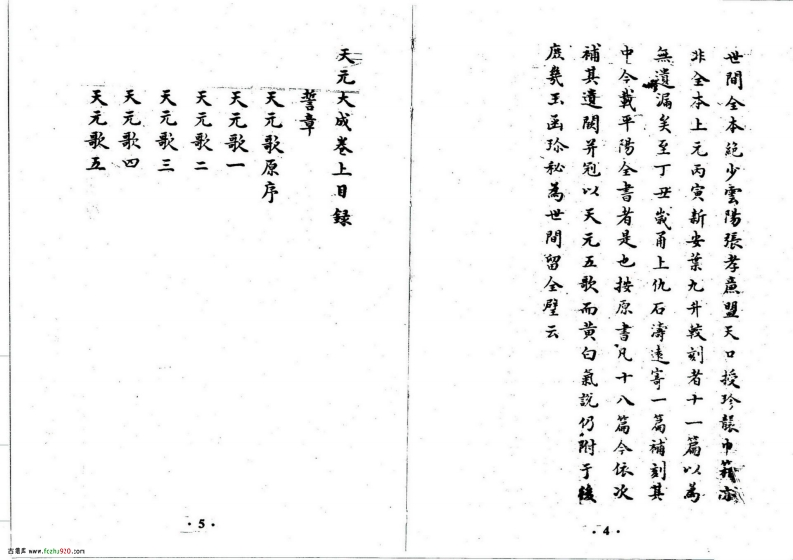 世間全本絶少雲陽張孝廉盟天口授珍襲巾籍亦
非全本上元丙寅新安葉九升較刻者十一篇以為
無遺漏矣至丁丑歲甬上仇石濤遠寄一篇補刻其
中今載平陽全書者是也按原書凡十八篇今依次
補其遺闕并冠以天元五歌而黄白氣説仍附于後
庶幾玉函珍秘為世間留全璧云
·4·
天元大成卷上目録
誓章
天元歌原序
天元歌一
天元歌二
天元歌三
天元歌四
天元歌五
·5·
www.fczhu920.com